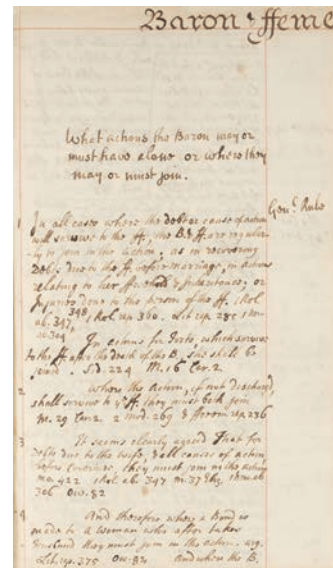 Baron & ffeme
What actions the Baron may or
must have alone or where they
may or must join.
Gen.l Rule
1 In all cases where the debt or cause of action
will survive to the ff, the B & ff are regular
ly to join in the action; as in recovering
Debts due to the ff before marriage, in actions
relating to her & Inheritances; or
Injuries done to the person of the ff. 1 Rol
ab. 347, 348, 1 Rol. rep. 360. 1
In actions for Torts, which survive
to the ff after the death of the B. she shall be
joined. Sid. 224 M. 16 Car. 2.
2 Where the Action, if not discharged,
shall survive to ye ff. they must both join
M. 29 Car. 2. 2 mod. 269 & rep 236
3 It seems clearly agreed That for
Debts due to the wife, & all causes of action
before coverture, they must join in the action
422 1 Rol. ab. 347 M. 37
306 Ow. 82
4 And therefore where a Bond is
made to a woman who after takes
Husband they must join in the action. arg.
rep. 375 Ow. 82 And where the B.